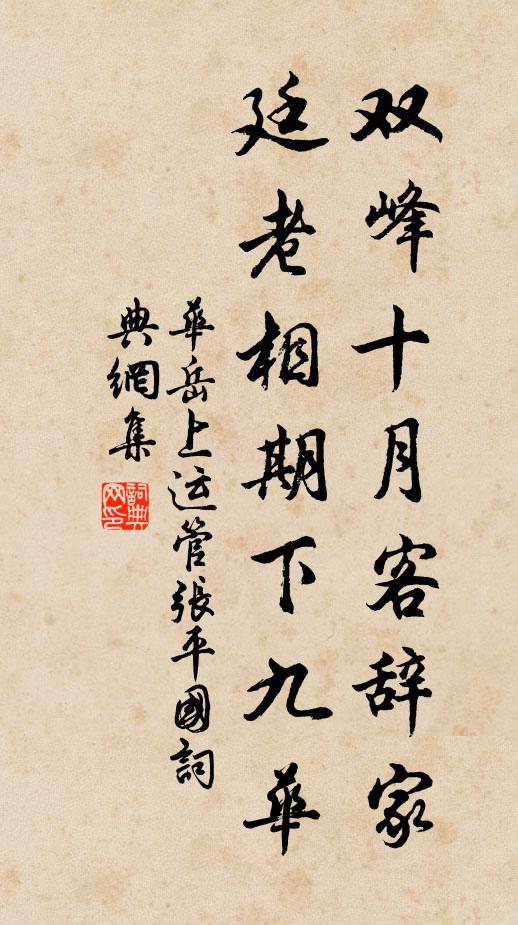 双峰十月客辞家
廷老相期下九華
華岳上运管張平國詞
典網集
詞典
网印